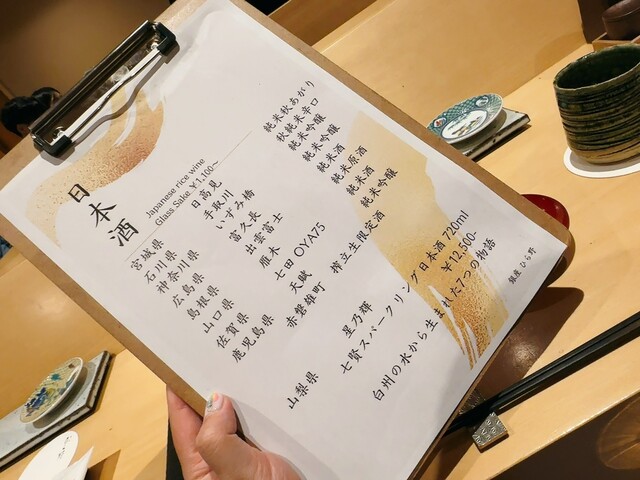 日本酒
Japanese rice wine
Glass Sake ¥1,100~
宮城県 日高見 純米秋あがり
石川県 手取川 秋純米辛口
神奈川県 いずみ橋 純米吟醸
広島県 富久長 純米吟醸
島根県 出雲富士 純米酒
山口県 雁木 純米原酒
佐賀県 七田 OYA75 純米酒
鹿児島県 天賦 純米吟醸
赤磐雄町 搾立生限定酒
山梨県 星乃輝
七賢スパークリング日本酒 720ml
¥12,500-
白州の水から生まれた7つの物語
銀座 ひら野